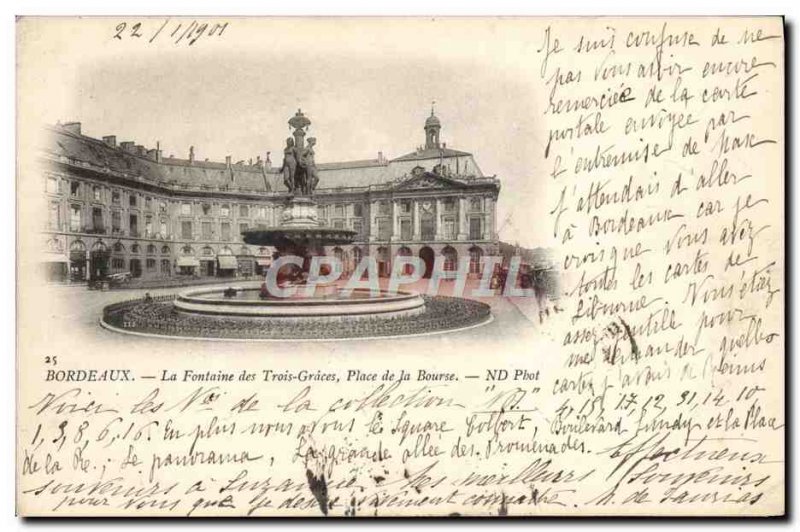 22/1/1901
Je suis confuse de ne
pas vous avoir encore
remerciée de la carte
postale envoyée par
l'entremise de
J'attendais d'aller
à Bordeaux car je
crois que vous avez
toutes les cartes de
Libourne. Vous étiez
assez gentille pour
me demander quelles
cartes j'avais de
4, 15, 17, 12, 31, 14, 10
CPAPHIL.COM
25
BORDEAUX. — La Fontaine des Trois-Grâces, Place de la Bourse. — ND Phot
Voici les Nos de la collection
1, 3, 8, 6, 16. En plus nous avons le Square, Boulevard et la Place
de la ; Le panorama, La grande allée des Promenades.
souvenirs à Suzanne. Mes meilleurs souvenirs
pour vous que je desire vivement connaitre.